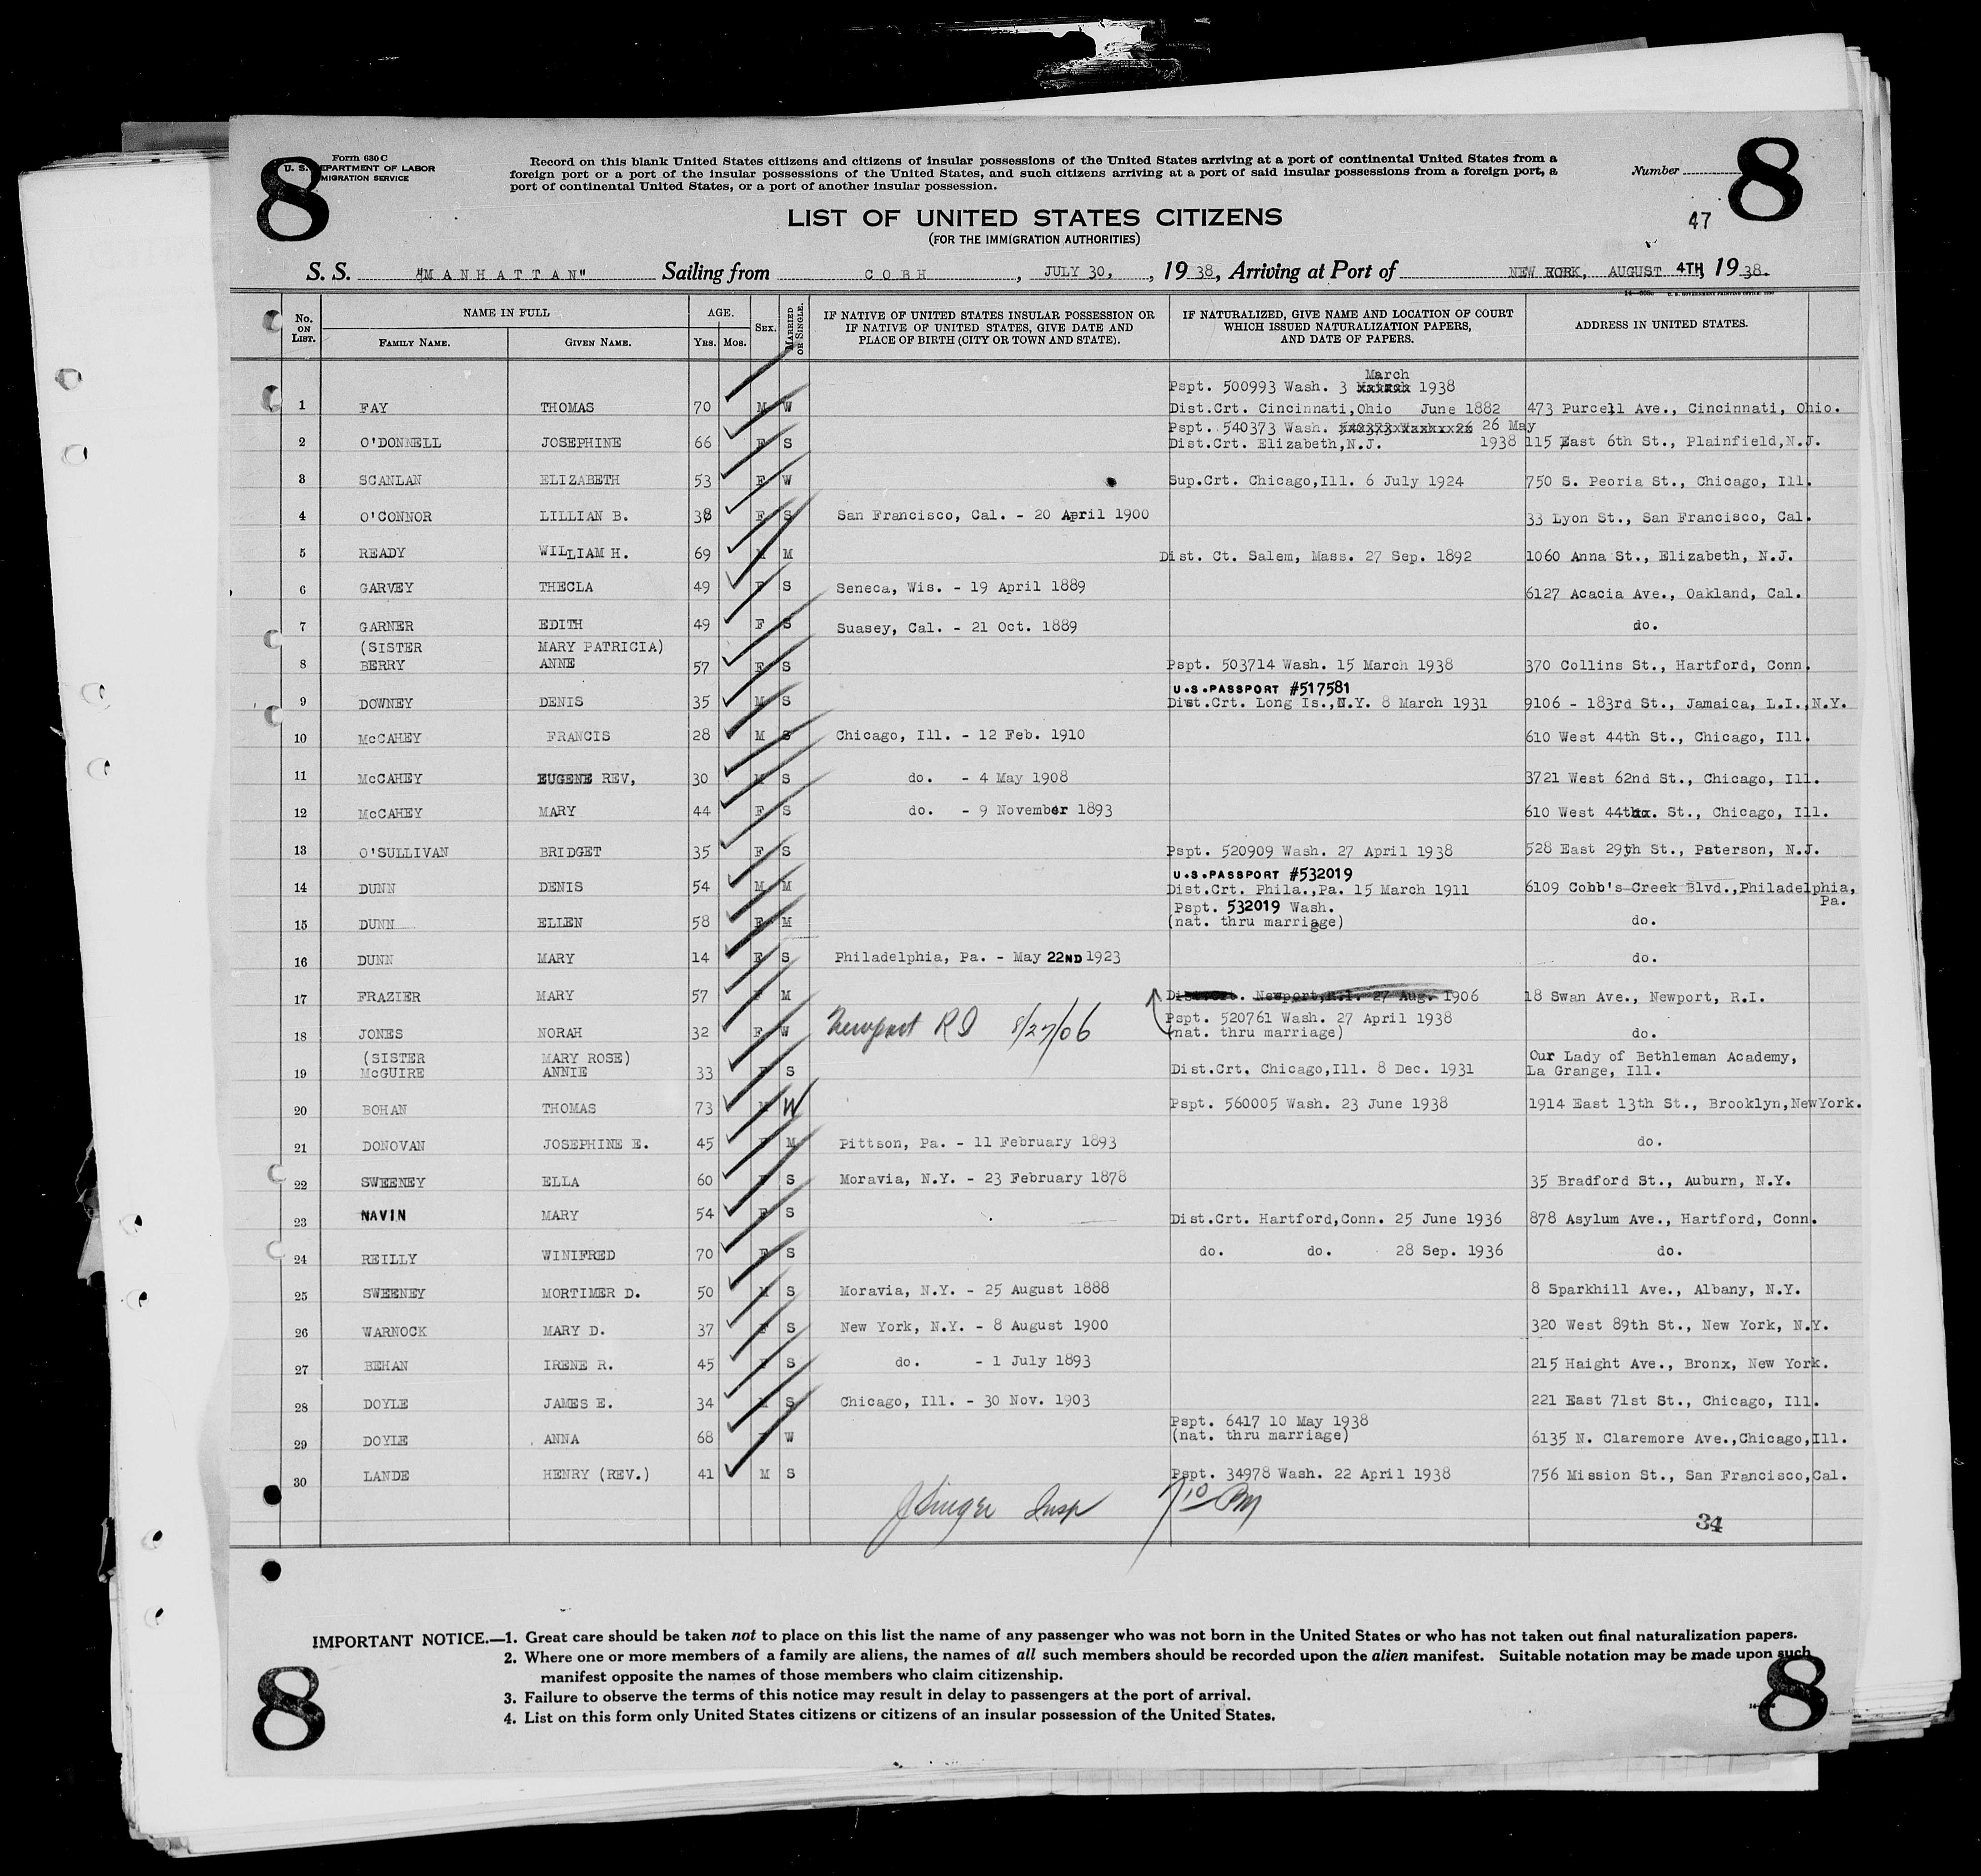 8 Form 630 C 8
U. S. DEPARTMENT OF LABOR
IMMIGRATION SERVICE
Record on this blank United States citizens and citizens of insular possessions of the United States arriving at a port of continental United States from a
foreign port or a port of the insular possessions of the United States, and such citizens arriving at a port of said insular possessions from a foreign port, a
port of continental United States, or a port of another insular possession.
Number
LIST OF UNITED STATES CITIZENS
47
(FOR THE IMMIGRATION AUTHORITIES)
S. S. "MANHATTAN" Sailing from COBH, JULY 30, , 19 38, Arriving at Port of NEW YORK, AUGUST 4TH, 19 38.
No. ON LIST. NAME IN FULL FAMILY NAME. GIVEN NAME. AGE. Yrs. Mos. SEX. MARRIED OR SINGLE. IF NATIVE OF UNITED STATES INSULAR POSSESSION OR IF NATIVE OF UNITED STATES, GIVE DATE AND PLACE OF BIRTH (CITY OR TOWN AND STATE). IF NATURALIZED, GIVE NAME AND LOCATION OF COURT WHICH ISSUED NATURALIZATION PAPERS, AND DATE OF PAPERS. ADDRESS IN UNITED STATES.
March
Pspt. 500993 Wash. 3 1938
1 FAY THOMAS 70 M W Dist.Crt. Cincinnati,Ohio June 1882 473 Purcell Ave., Cincinnati, Ohio.
Pspt. 540373 Wash. 26 May
2 O'DONNELL JOSEPHINE 66 F S Dist.Crt. Elizabeth,N.J. 1938 115 East 6th St., Plainfield,N.J.
3 SCANLAN ELIZABETH 53 F W Sup.Crt. Chicago,Ill. 6 July 1924 750 S. Peoria St., Chicago, Ill.
4 O'CONNOR LILLIAN B. 38 F S San Francisco, Cal. - 20 April 1900 33 Lyon St., San Francisco, Cal.
5 READY WILLIAM H. 69 M M Dist. Ct. Salem, Mass. 27 Sep. 1892 1060 Anna St., Elizabeth, N.J.
6 GARVEY THECLA 49 F S Seneca, Wis. - 19 April 1889 6127 Acacia Ave., Oakland, Cal.
7 GARNER EDITH 49 F S Suasey, Cal. - 21 Oct. 1889 do.
(SISTER MARY PATRICIA)
8 BERRY ANNE 57 F S Pspt. 503714 Wash. 15 March 1938 370 Collins St., Hartford, Conn.
U.S.PASSPORT #517581
9 DOWNEY DENIS 35 M S Dist.Crt. Long Is.,N.Y. 8 March 1931 9106 - 183rd St., Jamaica, L.I.,N.Y.
10 McCAHEY FRANCIS 28 M S Chicago, Ill. - 12 Feb. 1910 610 West 44th St., Chicago, Ill.
11 McCAHEY EUGENE REV, 30 M S do. - 4 May 1908 3721 West 62nd St., Chicago, Ill.
12 McCAHEY MARY 44 F S do. - 9 November 1893 610 West 44th. St., Chicago, Ill.
13 O'SULLIVAN BRIDGET 35 F S Pspt. 520909 Wash. 27 April 1938 528 East 29th St., Paterson, N.J.
U.S.PASSPORT #532019
14 DUNN DENIS 54 M M Dist.Crt. Phila.,Pa. 15 March 1911 6109 Cobb's Creek Blvd.,Philadelphia,
Pspt. 532019 Wash. Pa.
15 DUNN ELLEN 58 F M (nat. thru marriage) do.
16 DUNN MARY 14 F S Philadelphia, Pa. - May 22ND 1923 do.
17 FRAZIER MARY 57 F M Dist.Crt. Newport,R.I. 27 Aug. 1906 18 Swan Ave., Newport, R.I.
Pspt. 520761 Wash. 27 April 1938
18 JONES NORAH 32 F W Newport RI 8/27/06 (nat. thru marriage) do.
(SISTER MARY ROSE) Our Lady of Bethleman Academy,
19 McGUIRE ANNIE 33 F S Dist.Crt. Chicago,Ill. 8 Dec. 1931 La Grange, Ill.
20 BOHAN THOMAS 73 M W Pspt. 560005 Wash. 23 June 1938 1914 East 13th St., Brooklyn,NewYork.
21 DONOVAN JOSEPHINE E. 45 F M Pittson, Pa. - 11 February 1893 do.
22 SWEENEY ELLA 60 F S Moravia, N.Y. - 23 February 1878 35 Bradford St., Auburn, N.Y.
23 NAVIN MARY 54 F S Dist.Crt. Hartford,Conn. 25 June 1936 878 Asylum Ave., Hartford, Conn.
24 REILLY WINIFRED 70 F S do. do. 28 Sep. 1936 do.
25 SWEENEY MORTIMER D. 50 M S Moravia, N.Y. - 25 August 1888 8 Sparkhill Ave., Albany, N.Y.
26 WARNOCK MARY D. 37 F S New York, N.Y. - 8 August 1900 320 West 89th St., New York, N.Y.
27 BEHAN IRENE R. 45 F S do. - 1 July 1893 215 Haight Ave., Bronx, New York.
28 DOYLE JAMES E. 34 M S Chicago, Ill. - 30 Nov. 1903 221 East 71st St., Chicago, Ill.
Pspt. 6417 10 May 1938
29 DOYLE ANNA 68 F W (nat. thru marriage) 6135 N. Claremore Ave.,Chicago,Ill.
30 LANDE HENRY (REV.) 41 M S Pspt. 34978 Wash. 22 April 1938 756 Mission St., San Francisco,Cal.
Insp 7 10 PM
34
IMPORTANT NOTICE.—1. Great care should be taken not to place on this list the name of any passenger who was not born in the United States or who has not taken out final naturalization papers.
2. Where one or more members of a family are aliens, the names of all such members should be recorded upon the alien manifest. Suitable notation may be made upon such
manifest opposite the names of those members who claim citizenship.
3. Failure to observe the terms of this notice may result in delay to passengers at the port of arrival.
4. List on this form only United States citizens or citizens of an insular possession of the United States.
8 8